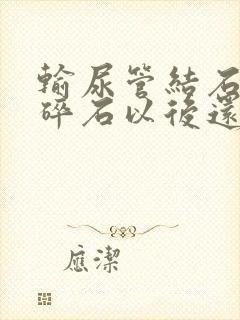 輸尿管結石
碎石以後還
應潔